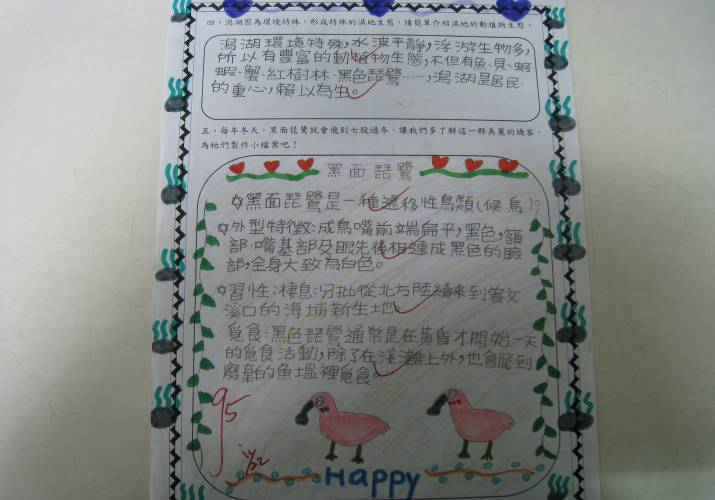 四、潟湖因為環境特殊，形成特殊的濕地生態，請簡單介紹濕地的動植物生態。
潟湖環境特殊，水波平靜，浮游生物多，
所以有豐富的動植物生態，不但有魚、貝、蚵
蝦、蟹、紅樹林、黑色琵鷺……，潟湖是居民
的重心，賴以為生。
五、每年冬天，黑面琵鷺就會飛到七股過冬，讓我們多了解這一群美麗的嬌客，
為牠們製作小檔案吧！
黑面琵鷺
黑面琵鷺是一種遷移性鳥類(候鳥)。
外型特徵：成鳥嘴前端扁平，黑色，額
部、嘴基部及眼先後相連成黑色的臉
部，全身大致為白色。
習性：棲息：分批從北方陸續來到曾文
溪口的海埔新生地
覓食：黑色琵鷺通常是在黃昏才開始一天
的覓食活動，除了在淺灘上外，也會飛到
廢棄的魚塭裡覓食。
95
HAPPY